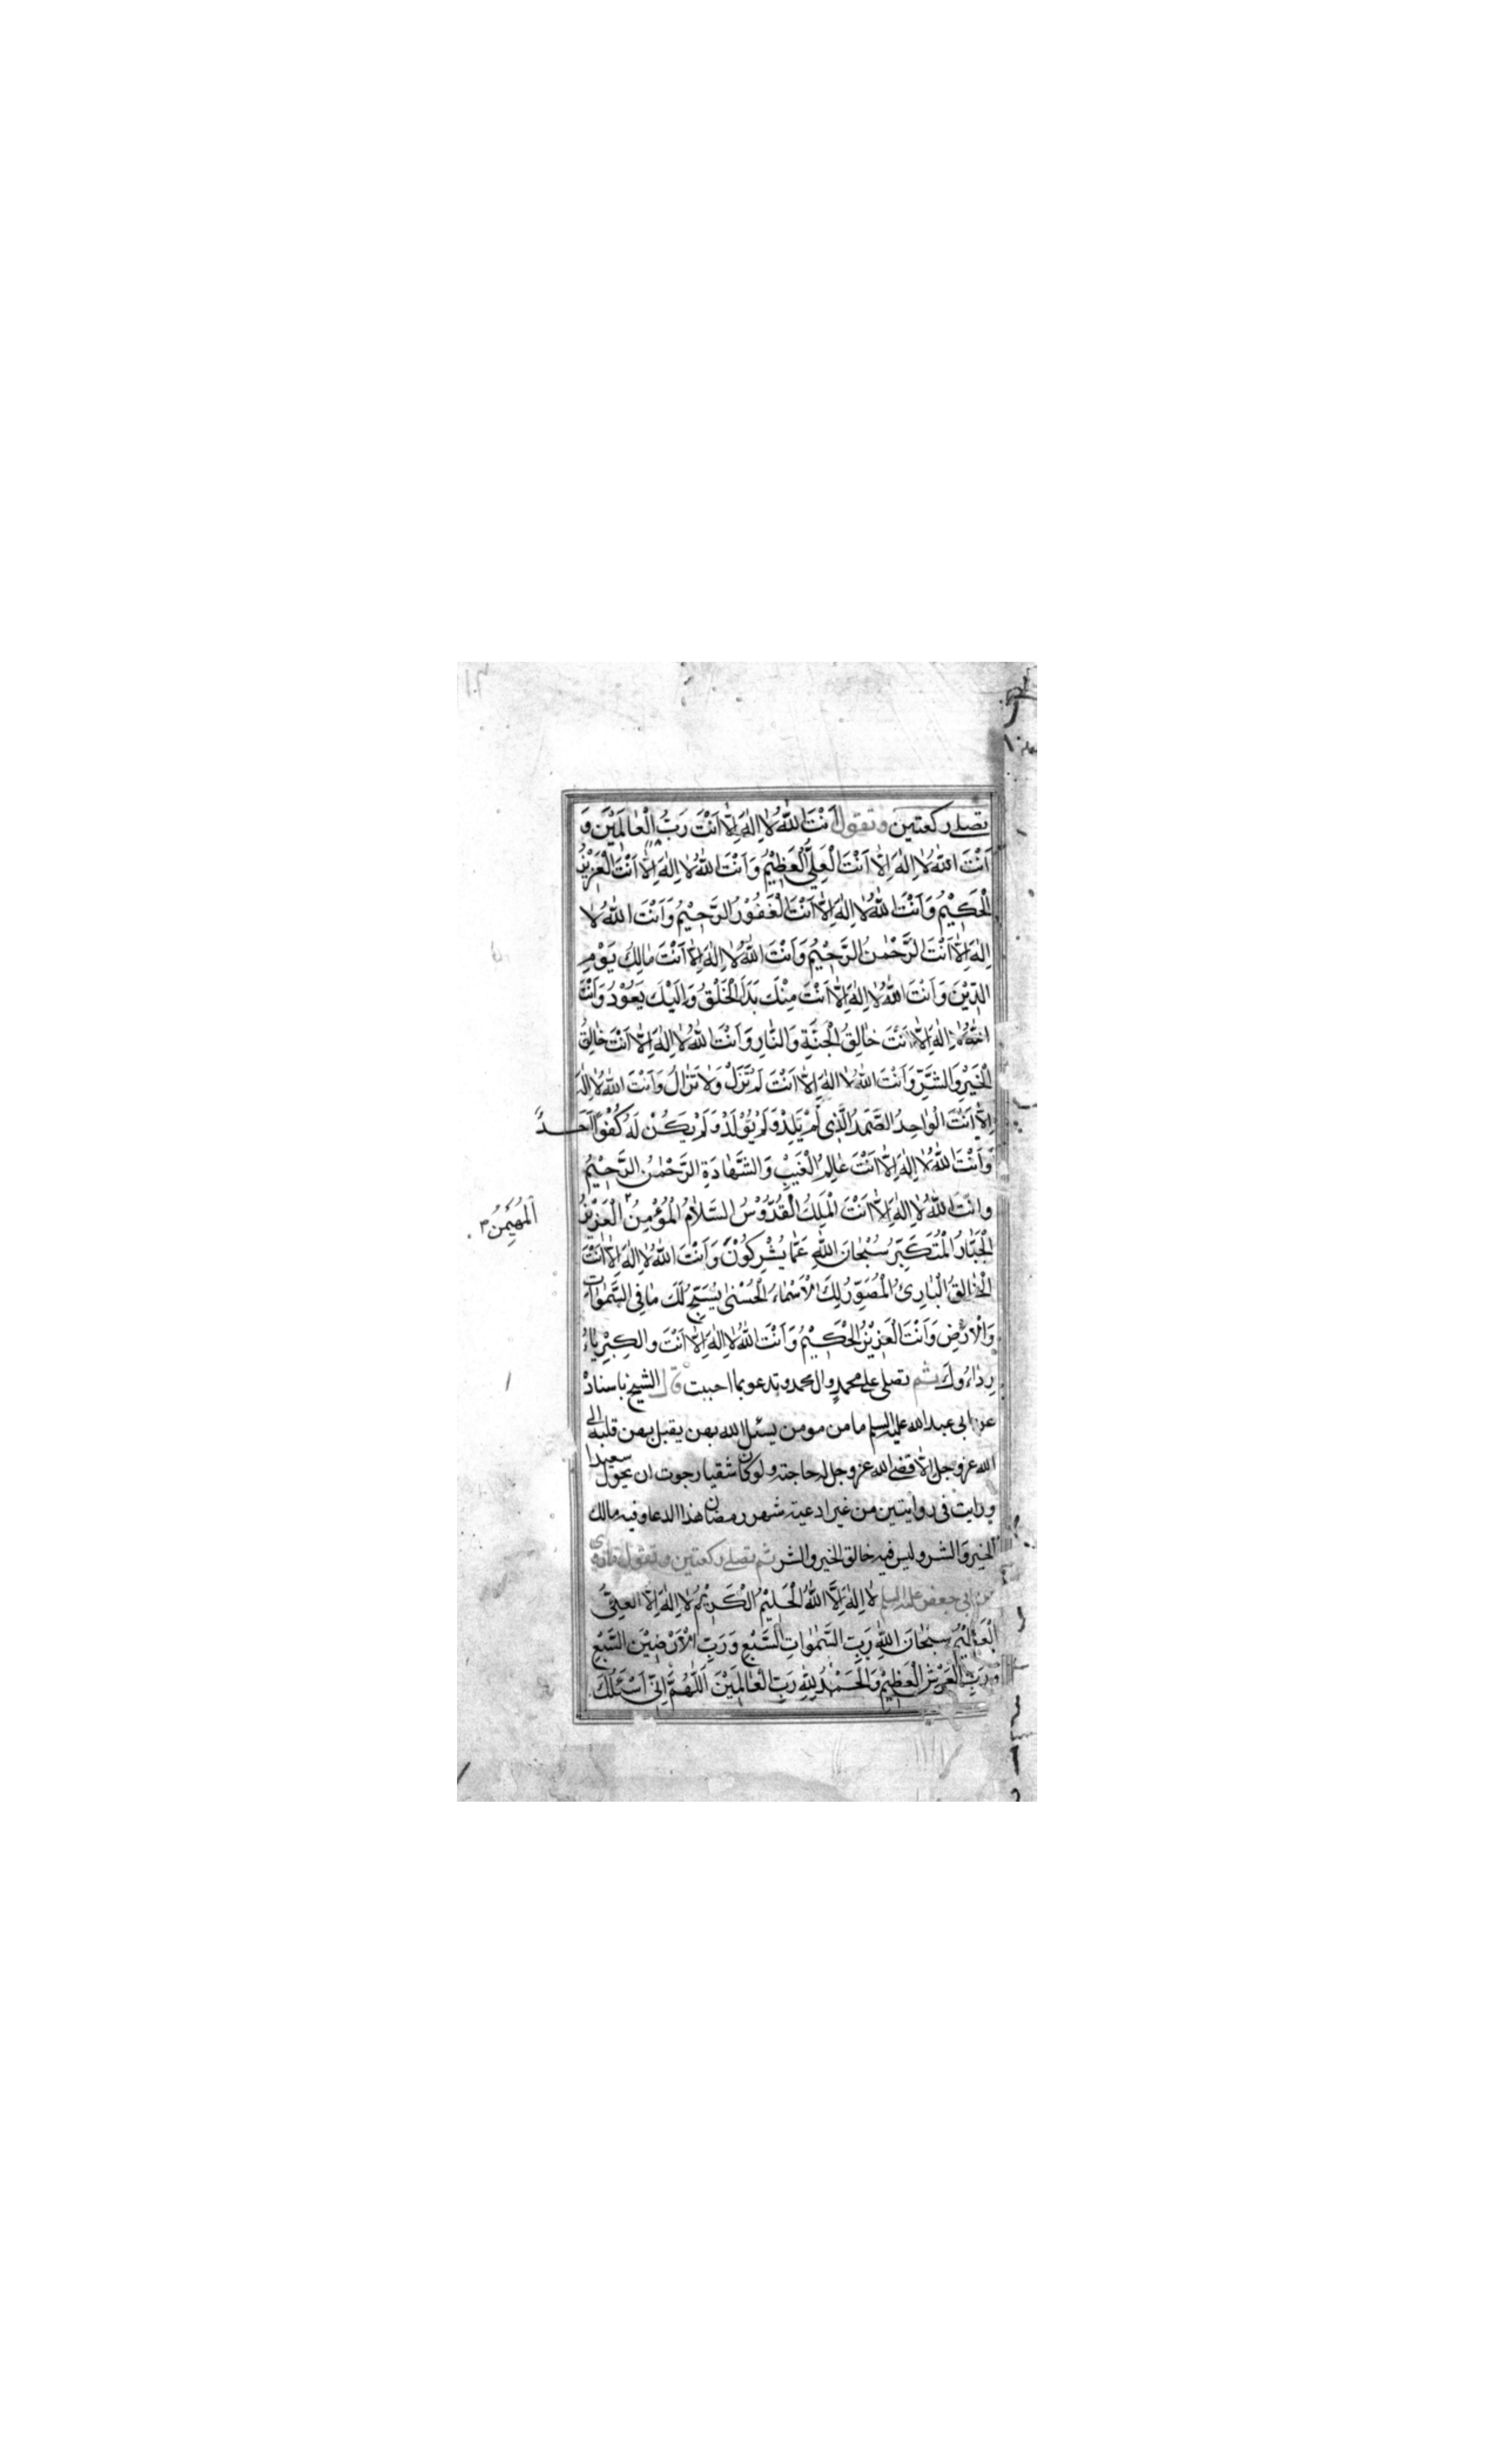 تصلي ركعتين وتقول اَنْتَ اللهُ لا اِلهَ اِلّا اَنْتَ رَبُّ الْعالَمِيْنَ وَ
اَنْتَ اللهُ لا اِلهَ اِلّا اَنْتَ الْعَلِيُّ الْعَظِيْمُ وَ اَنْتَ اللهُ لا اِلهَ اِلّا اَنْتَ الْعَزِيْزُ
الْحَكِيْمُ وَ اَنْتَ اللهُ لا اِلهَ اِلّا اَنْتَ الْغَفُوْرُ الرَّحِيْمُ وَ اَنْتَ اللهُ لا
اِلهَ اِلّا اَنْتَ الرَّحْمنُ الرَّحِيْمُ وَ اَنْتَ اللهُ لا اِلهَ اِلّا اَنْتَ مالِكُ يَوْمِ
الدِّيْنِ وَ اَنْتَ اللهُ لا اِلهَ اِلّا اَنْتَ مِنْكَ بَدَأَ الْخَلْقُ وَ اِلَيْكَ يَعُوْدُ وَ اَنْتَ
اللهُ لا اِلهَ اِلّا اَنْتَ خالِقُ الْجَنَّةِ وَ النّارِ وَ اَنْتَ اللهُ لا اِلهَ اِلّا اَنْتَ خالِقُ
الْخَيْرِ وَ الشَّرِّ وَ اَنْتَ اللهُ لا اِلهَ اِلّا اَنْتَ لَمْ تَزَلْ وَلا تَزالُ وَ اَنْتَ اللهُ لا اِلهَ
اِلّا اَنْتَ الْواحِدُ الصَّمَدُ الَّذِي لَمْ يَلِدْ وَ لَمْ يُوْلَدْ وَ لَمْ يَكُنْ لَهُ كُفُوًا اَحَدٌ
وَ اَنْتَ اللهُ لا اِلهَ اِلّا اَنْتَ عالِمُ الْغَيْبِ وَ الشَّهادَةِ الرَّحْمنُ الرَّحِيْمُ
وَ اَنْتَ اللهُ لا اِلهَ اِلّا اَنْتَ الْمَلِكُ الْقُدُّوْسُ السَّلامُ الْمُؤْمِنُ الْعَزِيْزُ
اَلْمُهَيْمِنُ
الْجَبّارُ الْمُتَكَبِّرُ سُبْحانَ اللهِ عَمّا يُشْرِكُوْنَ وَ اَنْتَ اللهُ لا اِلهَ اِلّا اَنْتَ
الْخالِقُ الْبارِئُ الْمُصَوِّرُ لَكَ الْاَسْماءُ الْحُسْنى يُسَبِّحُ لَكَ ما فِي السَّمواتِ
وَ الْاَرْضِ وَ اَنْتَ الْعَزِيْزُ الْحَكِيْمُ وَ اَنْتَ اللهُ لا اِلهَ اِلّا اَنْتَ و الْكِبْرِياءُ
رِداؤُكَ ثم تصلى على محمد وال محمد و تدعو بما احببت قال الشيخ باسناده
عن ابى عبد الله عليه السلم ما من مومن يسئل الله بهن يقبل بهن قلبه الى
الله عز وجل الا قضى الله عز و جل له حاجته و لو كان شقيا رجوت ان يحول سعيدا
و رايت فى روايتين من غير ادعية شهر رمضان هذا الدعا و فيه مالك
الخير وَ الشر و ليس فيه خالق الخير و الشر ثم تصلى ركعتين و تقول مارُوى
عن ابى جعفر عليه السلم لا اِلهَ اِلَّا اللهُ الْحَلِيْمُ الْكَرِيْمُ لا اِلهَ اِلّا الْعَلِيُّ
الْعَظِيْمُ سُبْحانَ اللهِ رَبِّ السَّمواتِ السَّبْعِ وَ رَبِّ الْاَرَضِيْنَ السَّبْعِ
وَ رَبِّ الْعَرْشِ الْعَظِيْمِ وَ الْحَمْدُ لِلهِ رَبِّ الْعالَمِيْنَ اَللّهُمَّ اِنِّي اَسْئَلُكَ